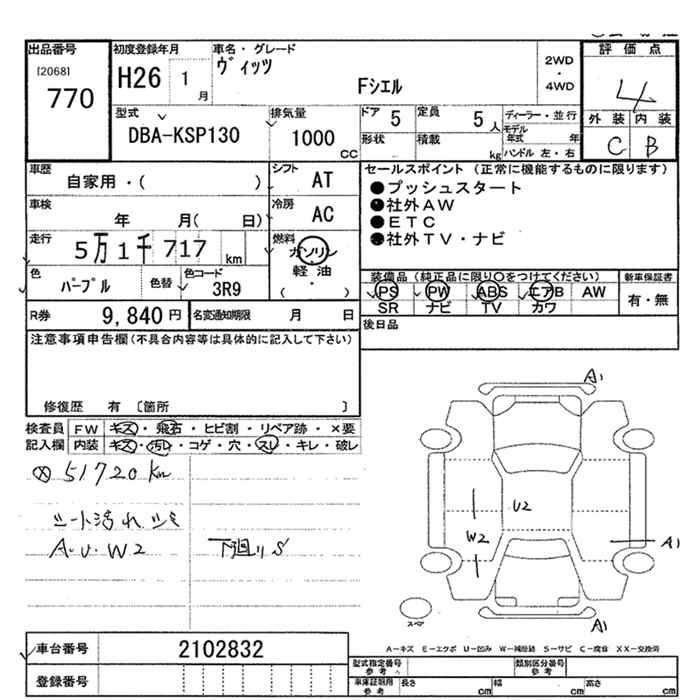 出品番号
[2068]
770
初度登録年月
H26 1 月
車名・グレード
ヴィッツ
Fシエル
2WD
・
4WD
評価点
4
外装 内装
C B
型式
DBA-KSP130
排気量
1000 CC
ドア 5
定員 5 人
形状
積載 kg
ディーラー・並行
モデル年式 年
ハンドル 左・右
車歴
自家用・( )
シフト AT
車検
年 月( 日)
冷房 AC
走行
5万1千717 km
燃料
ガソリン
軽油
( ・ )
色 パープル 色替
色コード 3R9
R券 9,840円
名変通知期限 月 日
セールスポイント (正常に機能するものに限ります)
●プッシュスタート
●社外AW
●ETC
●社外TV・ナビ
装備品(純正品に限り○をつけてください)
PS PW ABS エアB AW
SR ナビ TV カワ
新車保証書
有・無
後日品
注意事項申告欄(不具合内容等は具体的に記入して下さい)
修復歴 有 〔箇所 〕
検査員 FW キズ・飛石・ヒビ割・リペア跡・×要
記入欄 内装 キズ・汚レ・コゲ・穴・スレ・キレ・破レ
51720Km
シート汚れ シミ
A・U・W2
下廻りS
A1
U2
W2
A1
A1
スペア
A-キズ E-エクボ U-凹み W-補修跡 S-サビ C-腐食 XX-交換済
車台番号 2102832
登録番号
型式指定番号 参考
類別区分番号 参考
車庫証明用 参考 長さ cm 幅 cm 高さ cm